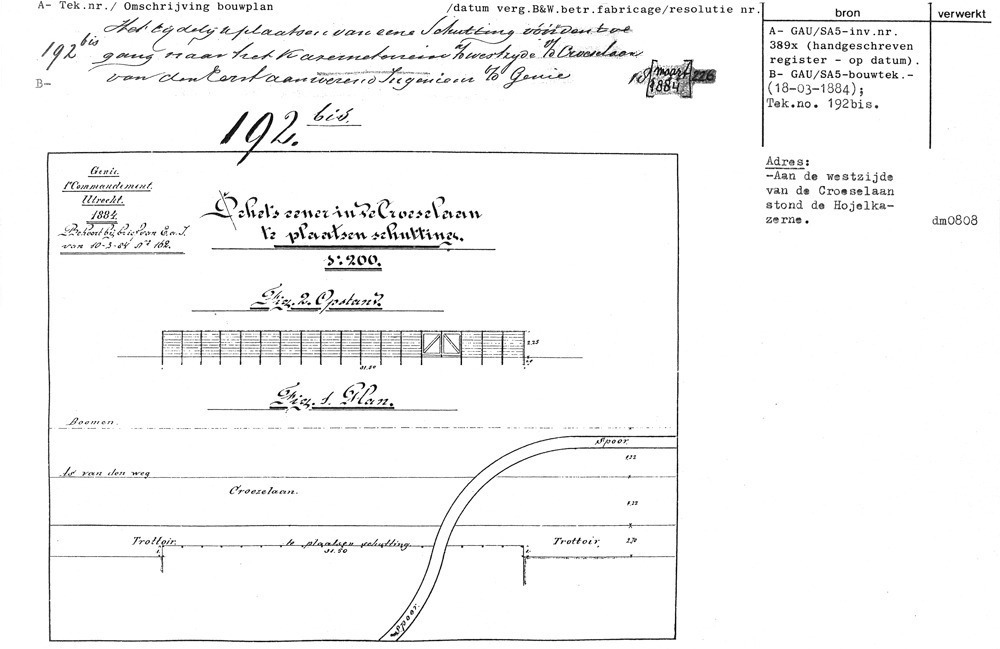 A- Tek.nr./ Omschrijving bouwplan /datum verg.B&W.betr.fabricage/resolutie nr.
bron
verwerkt
192 bis
Het tijdelijk plaatsen van eene Schutting vóór den toe
gang naar het Kazerneterrein a/d westzijde v/d Croeselaan
van den Eerst aanwezend Ingenieur v/d Genie
B-
18 maart
1884
226
A- GAU/SA5-inv.nr.
389x (handgeschreven
register - op datum).
B- GAU/SA5-bouwtek.-
(18-03-1884);
Tek.no. 192bis.
Adres:
-Aan de westzijde
van de Croeselaan
stond de Hojelka-
zerne.
dm0808
192. bis.
Genie.
1e Commandement.
Utrecht.
1884.
Behoort bij brief van E.a.I.
van 10-3-84 No 162.
Schets eener in de Croeselaan
te plaatsen schutting.
1:200.
Fig. 2. Opstand.
2,25
31.50
Fig. 1. Plan.
Boomen.
Spoor.
As van den weg
Croezelaan.
Trottoir.
te plaatsen schutting
31.50
Trottoir.
2,70
Spoor.